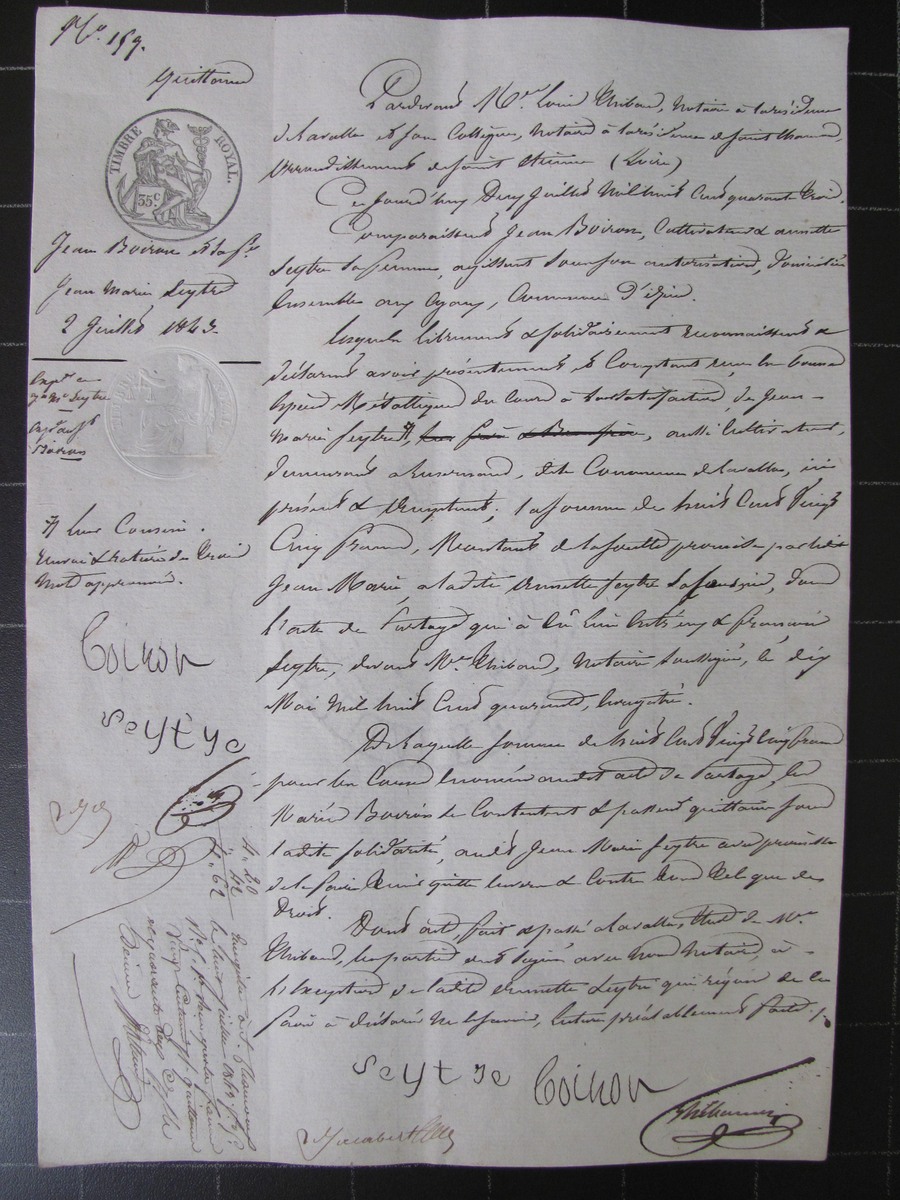 N.o 159.
Quittance
TIMBRE ROYAL.
35c
Jean Boiron et sa fe
Jean Marie Seytre
2 Juillet 1843.
Expn a
Jn Me Seytre
Boiron
≠ leur Cousin.
Renvoi & rature de trois
mots approuvés.
Boiron
Seytre
Pardevant Me Louis Thibaud, Notaire à la résidence
de Lavalla et son Collègue, Notaire à la résidence de Saint Chamond,
arrondissement de Saint Etienne (Loire)
Ce jourd'huy Deux Juillet Mil huit Cent quarante trois.
Comparaissent Jean Boiron, Cultivateur & annette
Seytre sa femme, agissant sous son autorisation, domiciliés
Ensemble au, Commune d'izieu.
Lesquels librement & solidairement reconnaissent &
déclarent avoir présentement et Comptant reçu en bonnes
Espèces Métalliques du Cours à leur satisfaction, de Jean
Marie Seytre ≠, aussi Cultivateur,
demeurant a, dite Commune de Lavalla, ici
présent & acceptant, la somme de huit Cent Vingt
Cinq francs, Montant de la soulte promise par ledit
Jean Marie, a ladite annette Seytre, dans
l'acte de Partage qui a eu lieu entr'eux & françois
Seytre, devant Me Thibaud, Notaire soussigné, le dix
Mai Mil huit Cent quarante, Enregistré.
De laquelle somme de huit Cent Vingt Cinq francs
pour les Causes Enoncées audit acte de Partage, les
Mariés Boiron se Contentent & passent quittance sous
ladite solidarité, audit Jean Marie Seytre avec promesse
de le faire tenir quitte envers & Contre tous tel que de
Droit.
Dont acte, fait & passé a Lavalla, Etude de Me
Thibaud, les parties ont signé avec nous Notaires, à
l'Exception de ladite annette Seytre qui requise de ce
faire à déclaré ne le savoir, lecture préalablement faite.
Seytre Boiron
4. 20
42
4. 62
Enregistré a St Chamond
le huit juillet 1843